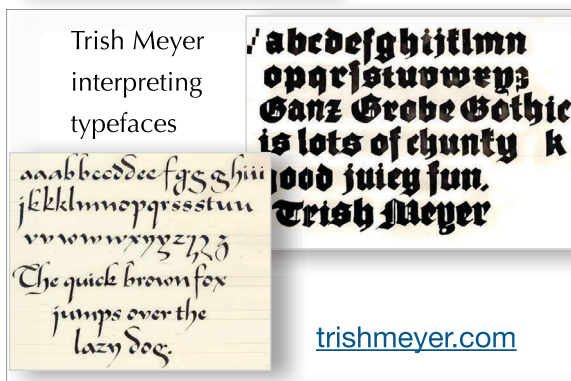 Trish Meyer
interpreting
typefaces
abcdefghijklmn
opqrsstuvwxyz
Ganz Grobe Gothic
is lots of chunky k
good juicy fun.
Trish Meyer
aaabbccddeefggghiii
jkkklmnopqrssstuu
vvwwwxyyzzzz
The quick brown fox
jumps over the
lazy dog.
trishmeyer.com